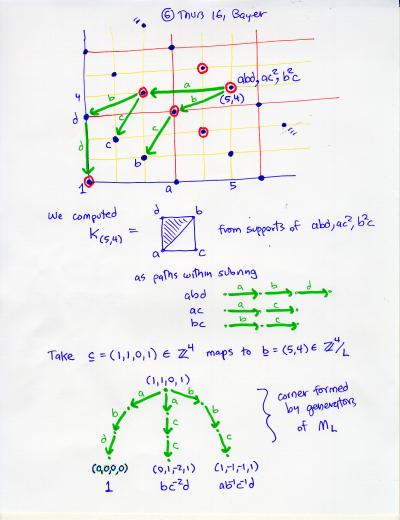 ⑥ Thurs 16, Bayer
a
abd, ac², b²c
4
b
c
b
(5,4)
d
c
c
d
b
1
a
5
We computed
K(5,4) =
d
b
a
c
from supports of abd, ac², b²c
as paths within subring
abd
a
b
d
ac
a
c
bc
b
c
Take c = (1,1,0,1) ∈ ℤ⁴ maps to b = (5,4) ∈ ℤ⁴/L
(1,1,0,1)
b
a
a
b
d
c
c
c
b
corner formed
by generators
of M_L
(0,0,0,0)
(0,1,-2,1)
(1,-1,-1,1)
1
bc⁻²d
ab⁻¹c⁻¹d